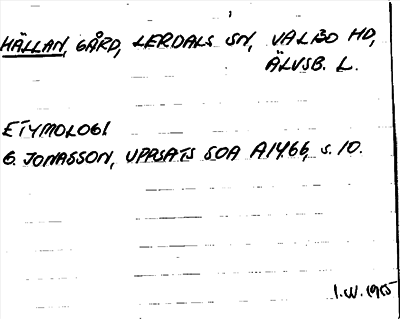 HÄLLAN, GÅRD, LERDALS SN, VALBO HD,
ÄLVSB. L.
ETYMOLOGI
G. JONASSON, UPPSATS SOA A1466, s. 10.
I.W. 1985